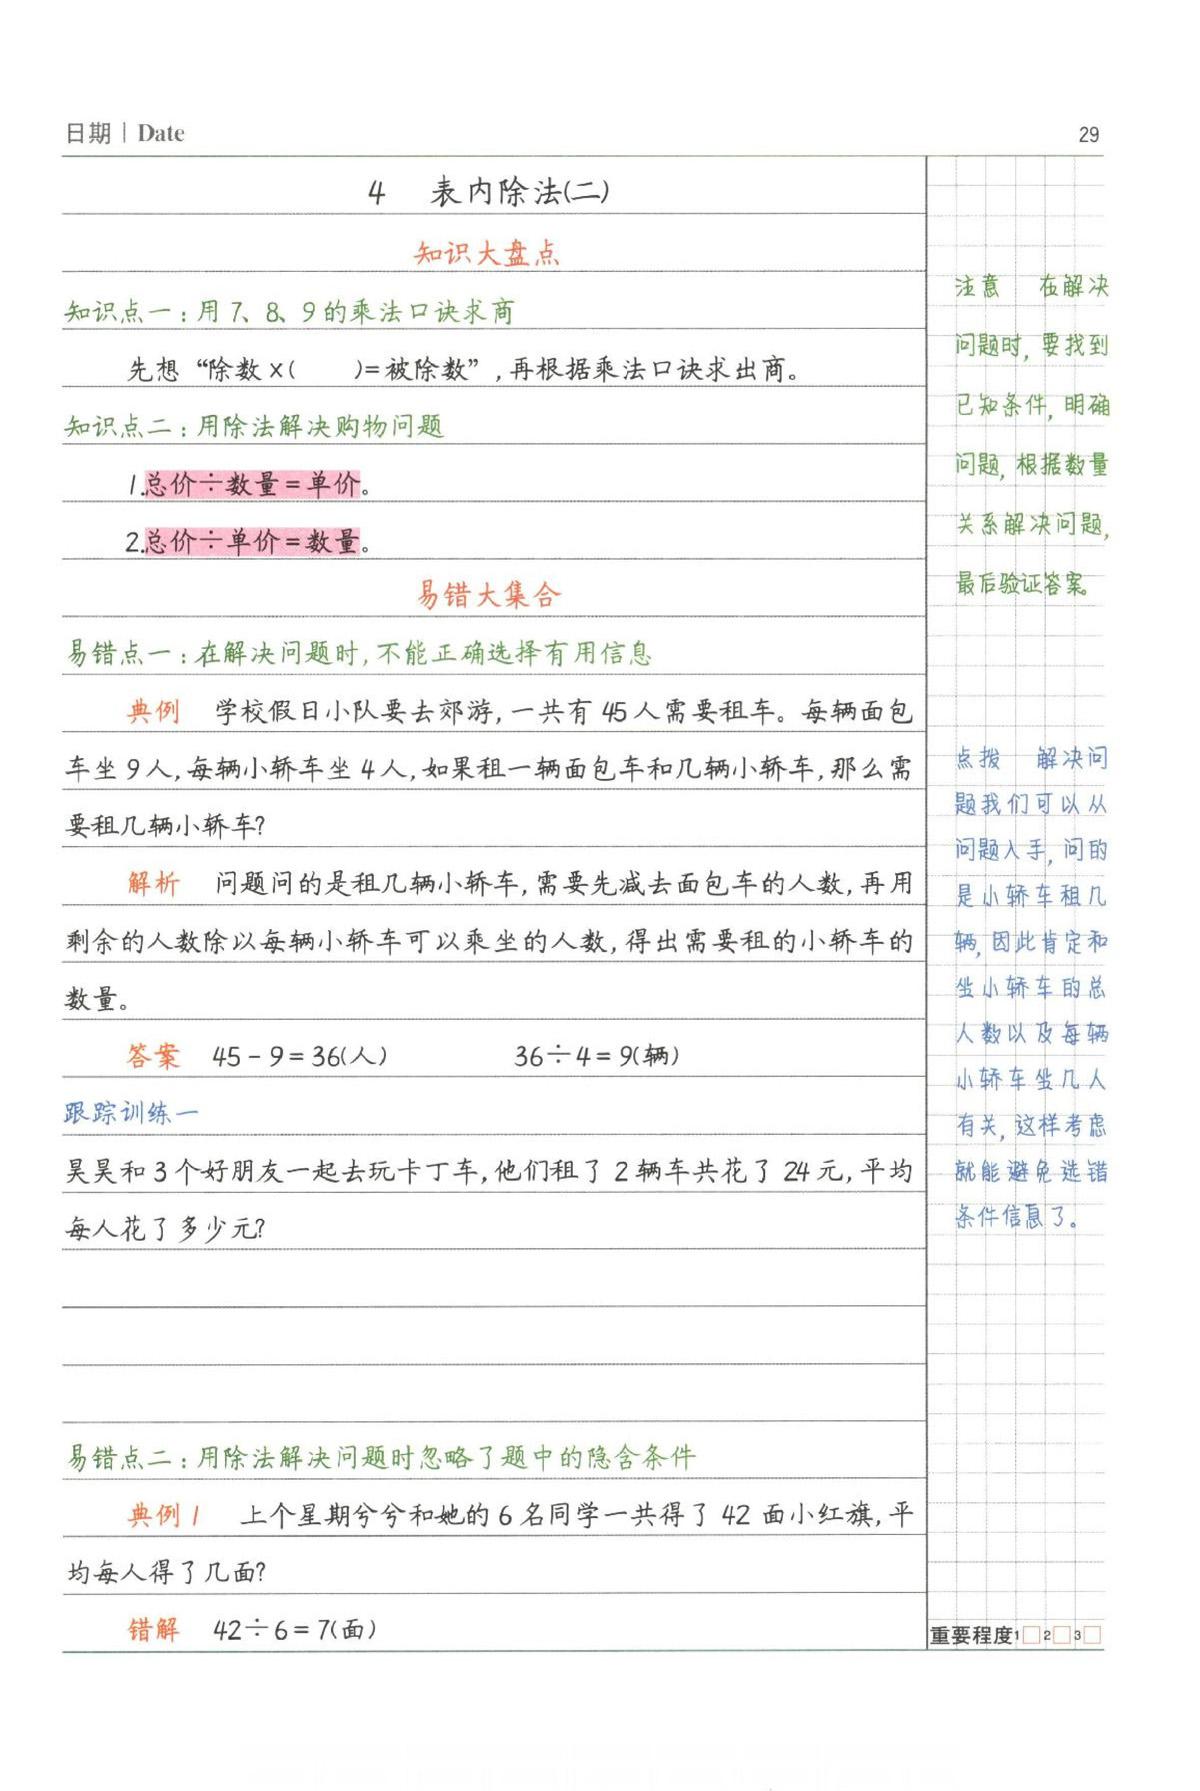 日期 | Date
29
4 表内除法(二)
知识大盘点
知识点一:用7、8、9的乘法口诀求商
先想“除数×( )=被除数”,再根据乘法口诀求出商。
知识点二:用除法解决购物问题
1.总价÷数量=单价。
2.总价÷单价=数量。
易错大集合
易错点一:在解决问题时,不能正确选择有用信息
典例 学校假日小队要去郊游,一共有45人需要租车。每辆面包
车坐9人,每辆小轿车坐4人,如果租一辆面包车和几辆小轿车,那么需
要租几辆小轿车?
解析 问题问的是租几辆小轿车,需要先减去面包车的人数,再用
剩余的人数除以每辆小轿车可以乘坐的人数,得出需要租的小轿车的
数量。
答案 45-9=36(人) 36÷4=9(辆)
跟踪训练一
昊昊和3个好朋友一起去玩卡丁车,他们租了2辆车共花了24元,平均
每人花了多少元?
易错点二:用除法解决问题时忽略了题中的隐含条件
典例1 上个星期兮兮和她的6名同学一共得了42面小红旗,平
均每人得了几面?
错解 42÷6=7(面)
注意 在解决
问题时,要找到
已知条件,明确
问题,根据数量
关系解决问题,
最后验证答案。
点拨 解决问
题我们可以从
问题入手,问的
是小轿车租几
辆,因此肯定和
坐小轿车的总
人数以及每辆
小轿车坐几人
有关,这样考虑
就能避免选错
条件信息了。
重要程度1□2□3□